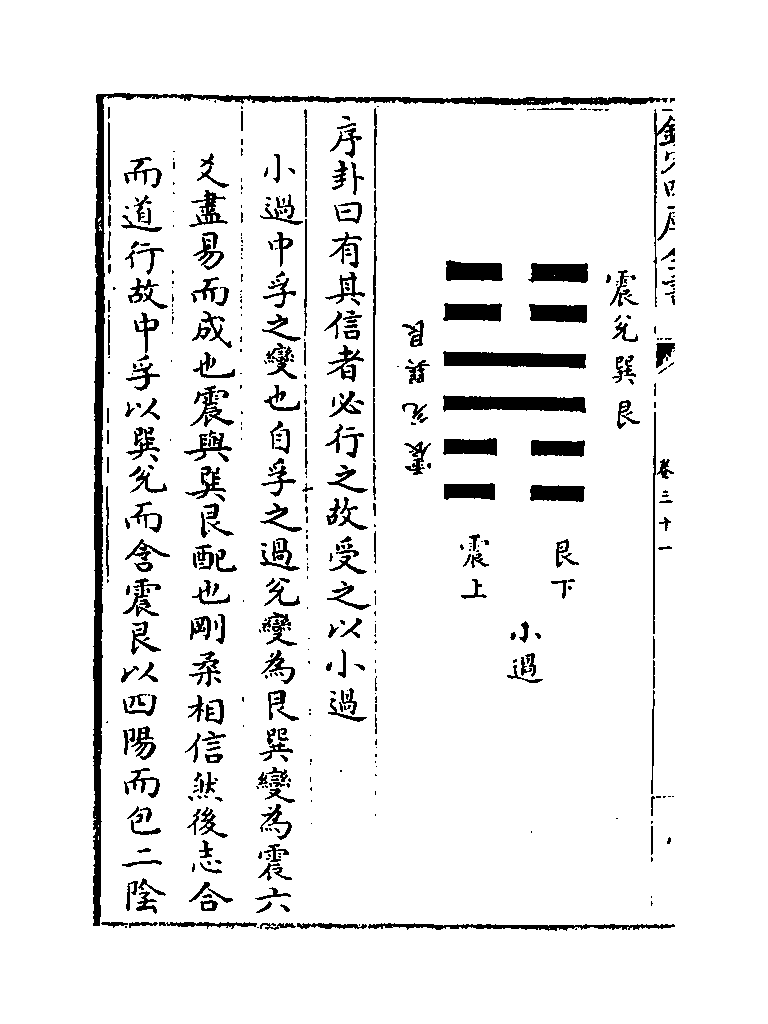 欽定四庫全書
卷三十一
震兌巽艮
艮下
震上
小過
艮巽兌震
序卦曰有其信者必行之故受之以小過
小過中孚之變也自孚之過兌變為艮巽變為震六
爻盡易而成也震與巽艮配也剛柔相信然後志合
而道行故中孚以巽兌而含震艮以四陽而包二陰